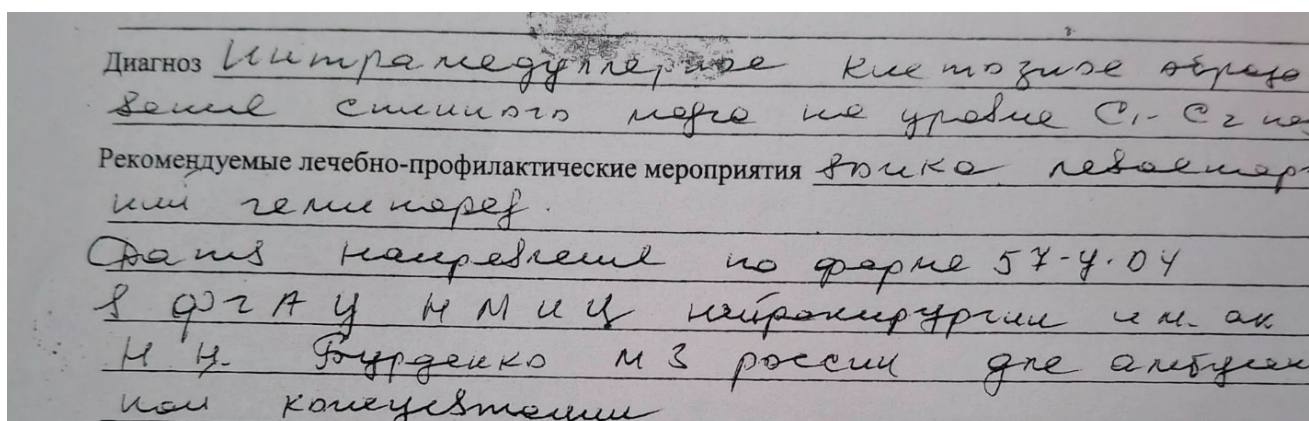 Диагноз Интрамедуллярное кистозное образо
вание спинного мозга на уровне C1-C2 поз
Рекомендуемые лечебно-профилактические мероприятия вонка левостор
ний гемипарез.
Дать направление по форме 57-у-04
в ФГАУ НМИЦ нейрохирургии им. ак
Н.Н. Бурденко МЗ России для амбулат
ной консультации